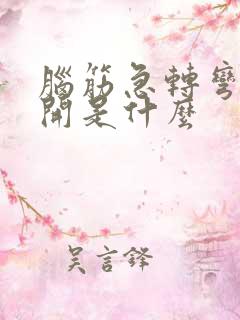 腦筋急轉彎
開是什麼
吳言鋒